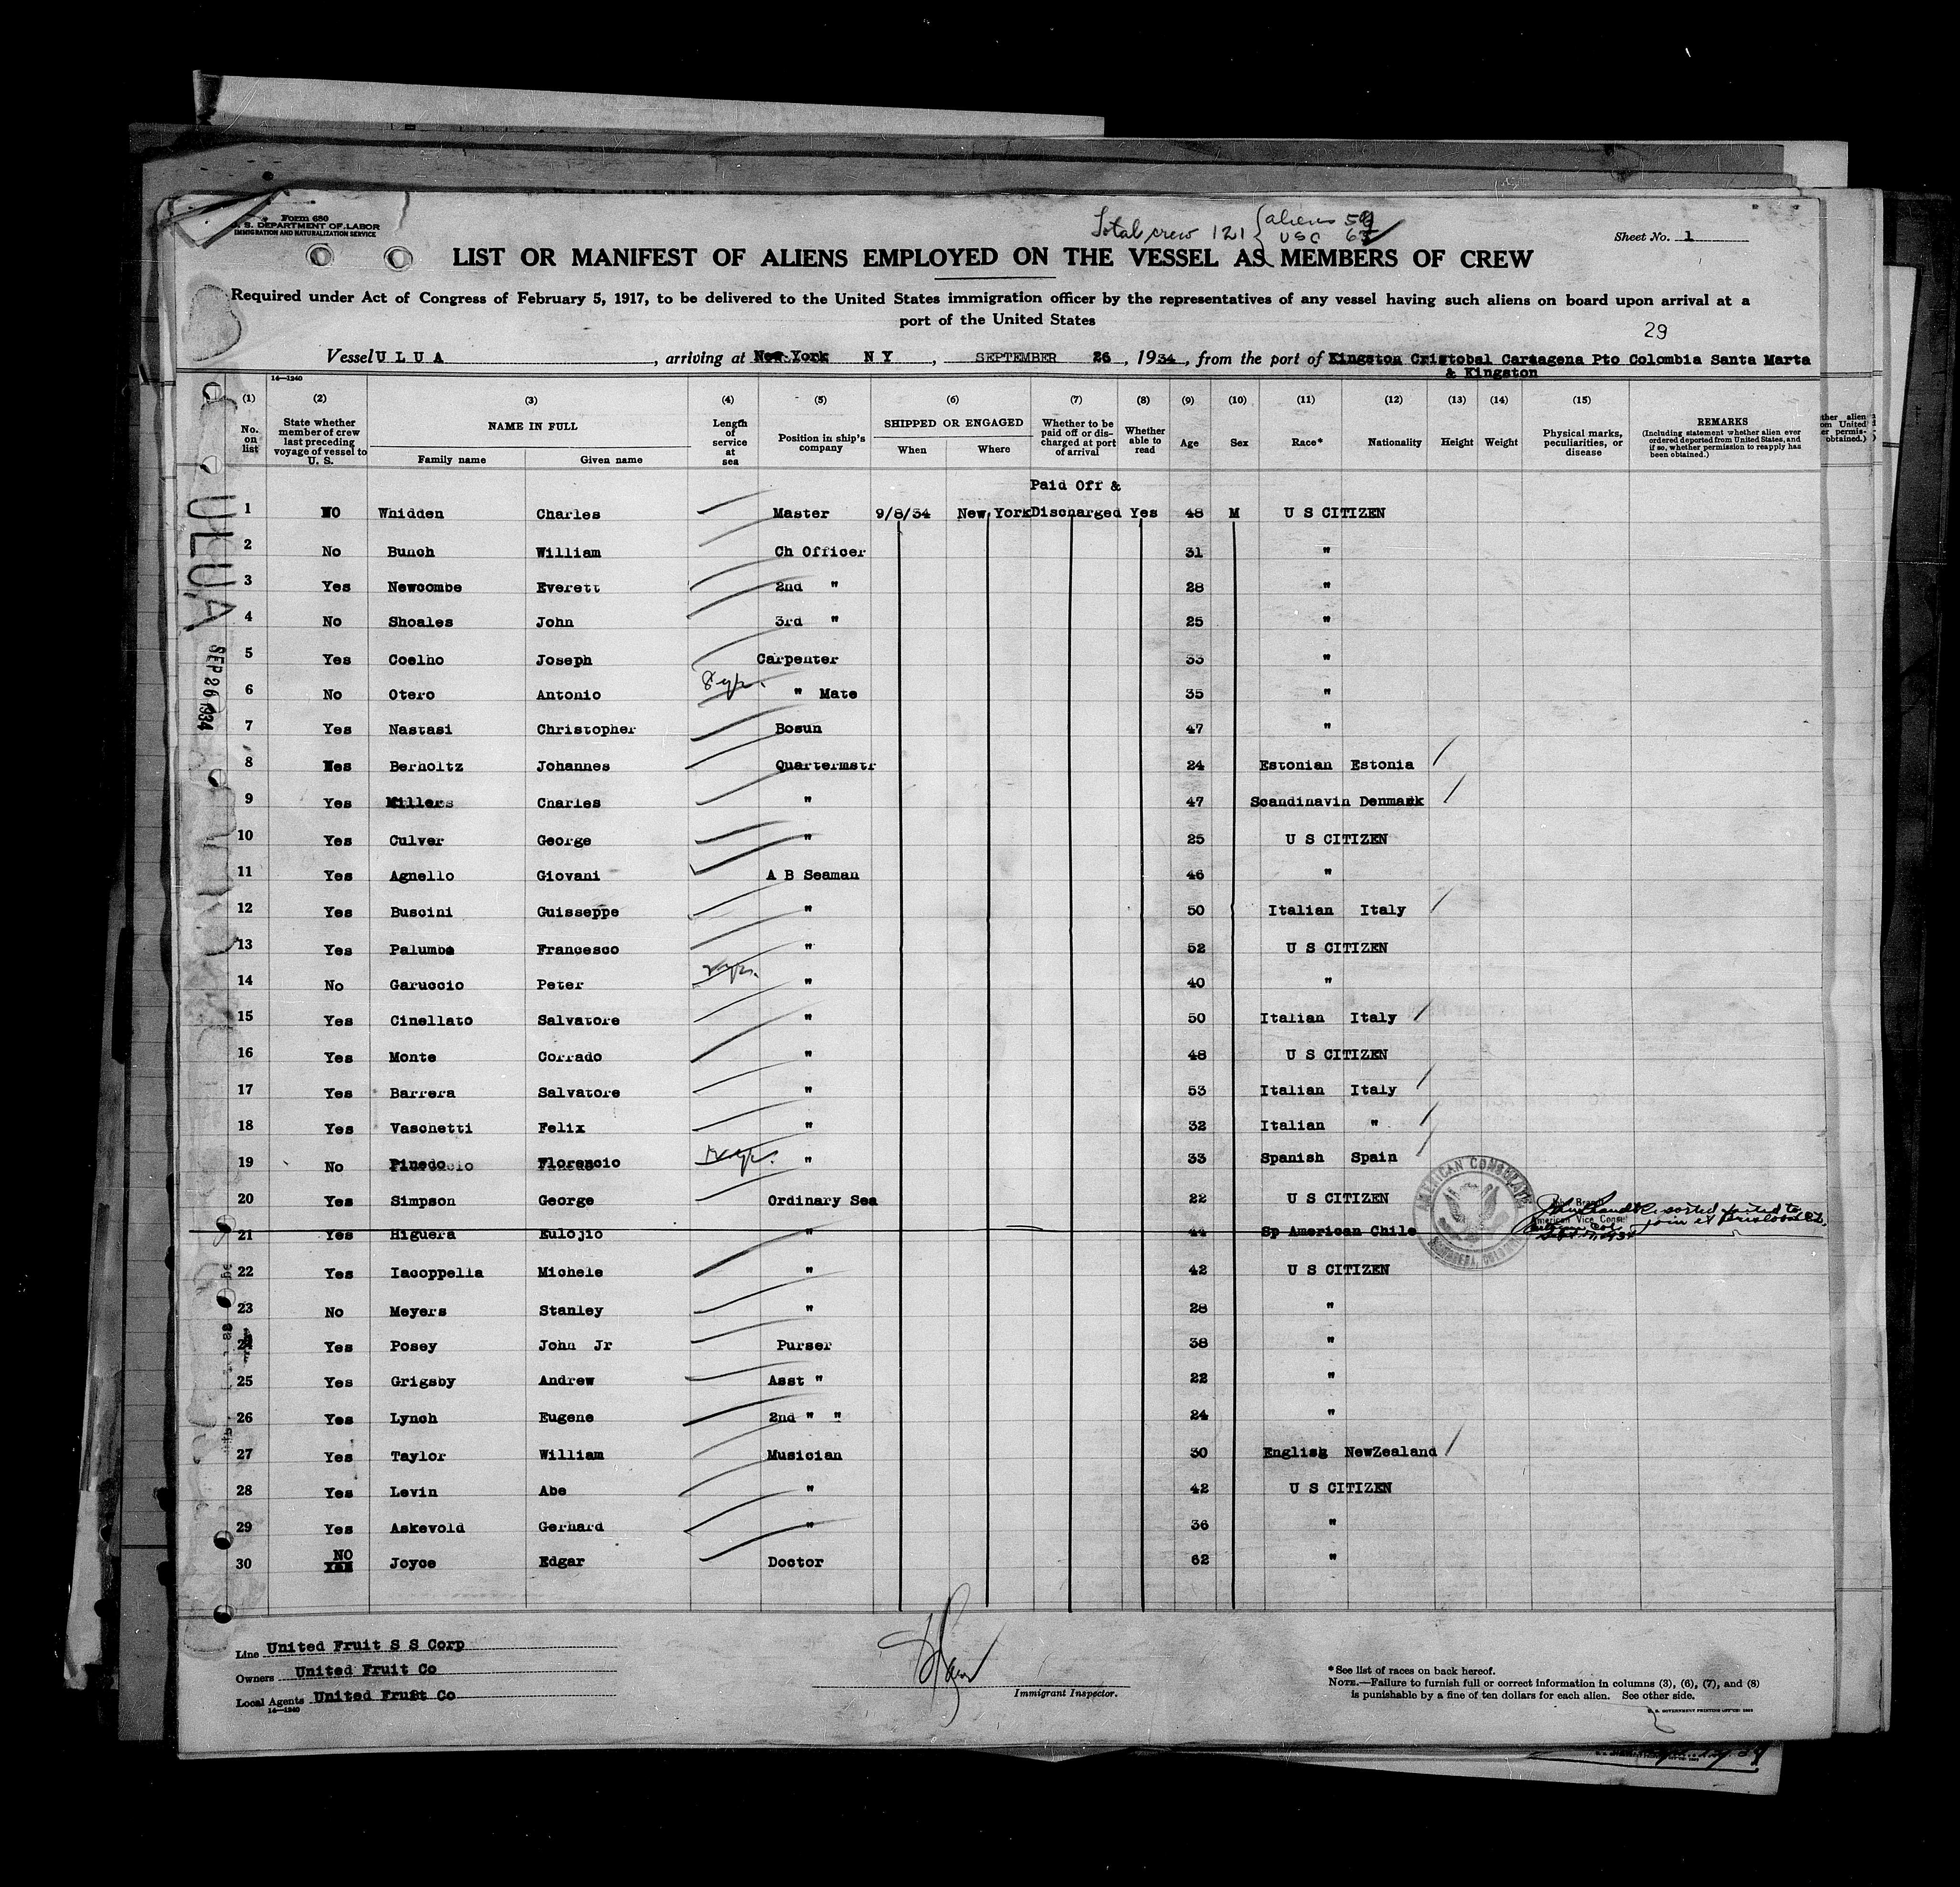 Form 680
U. S. DEPARTMENT OF LABOR
IMMIGRATION AND NATURALIZATION SERVICE
Total crew 121 { aliens 59
USC 63
Sheet No. 1
LIST OR MANIFEST OF ALIENS EMPLOYED ON THE VESSEL AS MEMBERS OF CREW
Required under Act of Congress of February 5, 1917, to be delivered to the United States immigration officer by the representatives of any vessel having such aliens on board upon arrival at a
port of the United States
29
Vessel U L U A , arriving at New York N Y , SEPTEMBER 26 , 1934 , from the port of Kingston Cristobal Cartagena Pto Colombia Santa Marta
& Kingston
14—1240
(1) (2) (3) (4) (5) (6) (7) (8) (9) (10) (11) (12) (13) (14) (15)
No. on list State whether member of crew last preceding voyage of vessel to U. S. NAME IN FULL Family name Given name Length of service at sea Position in ship's company SHIPPED OR ENGAGED When Where Whether to be paid off or discharged at port of arrival Whether able to read Age Sex Race* Nationality Height Weight Physical marks, peculiarities, or disease REMARKS (Including statement whether alien ever ordered deported from United States, and if so, whether permission to reapply has been obtained.)
Paid Off &
1 NO Whidden Charles Master 9/8/34 New York Discharged Yes 48 M U S CITIZEN
2 No Bunch William Ch Officer 31 "
3 Yes Newcombe Everett 2nd " 28 "
4 No Shoales John 3rd " 25 "
5 Yes Coelho Joseph Carpenter 33 "
6 No Otero Antonio 8 yrs. " Mate 35 "
7 Yes Nastasi Christopher Bosun 47 "
8 Yes Berholtz Johannes Quartermstr 24 Estonian Estonia
9 Yes Millers Charles " 47 Scandinavin Denmark
10 Yes Culver George " 25 U S CITIZEN
11 Yes Agnello Giovani A B Seaman 46 "
12 Yes Buscini Guisseppe " 50 Italian Italy
13 Yes Palumbo Francesco " 52 U S CITIZEN
14 No Garuccio Peter " 40 "
15 Yes Cinellato Salvatore " 50 Italian Italy
16 Yes Monte Corrado " 48 U S CITIZEN
17 Yes Barrera Salvatore " 53 Italian Italy
18 Yes Vaschetti Felix " 32 Italian "
19 No Pinedo Florencio " 33 Spanish Spain
20 Yes Simpson George Ordinary Sea 22 U S CITIZEN
21 Yes Higuera Eulojio " 44 Sp American Chile
AMERICAN CONSULATE
American Vice Consul
22 Yes Iacoppella Michele " 42 U S CITIZEN
23 No Meyers Stanley " 28 "
24 Yes Posey John Jr Purser 38 "
25 Yes Grigsby Andrew Asst " 22 "
26 Yes Lynch Eugene 2nd " " 24 "
27 Yes Taylor William Musician 30 English NewZealand
28 Yes Levin Abe " 42 U S CITIZEN
29 Yes Askevold Gerhard " 36 "
30 NO Joyce Edgar Doctor 62 "
ULUA
SEP 26 1934
Line United Fruit S S Corp
Owners United Fruit Co
Local Agents United Fruit Co
14—1240
Immigrant Inspector.
*See list of races on back hereof.
NOTE.—Failure to furnish full or correct information in columns (3), (6), (7), and (8)
is punishable by a fine of ten dollars for each alien. See other side.